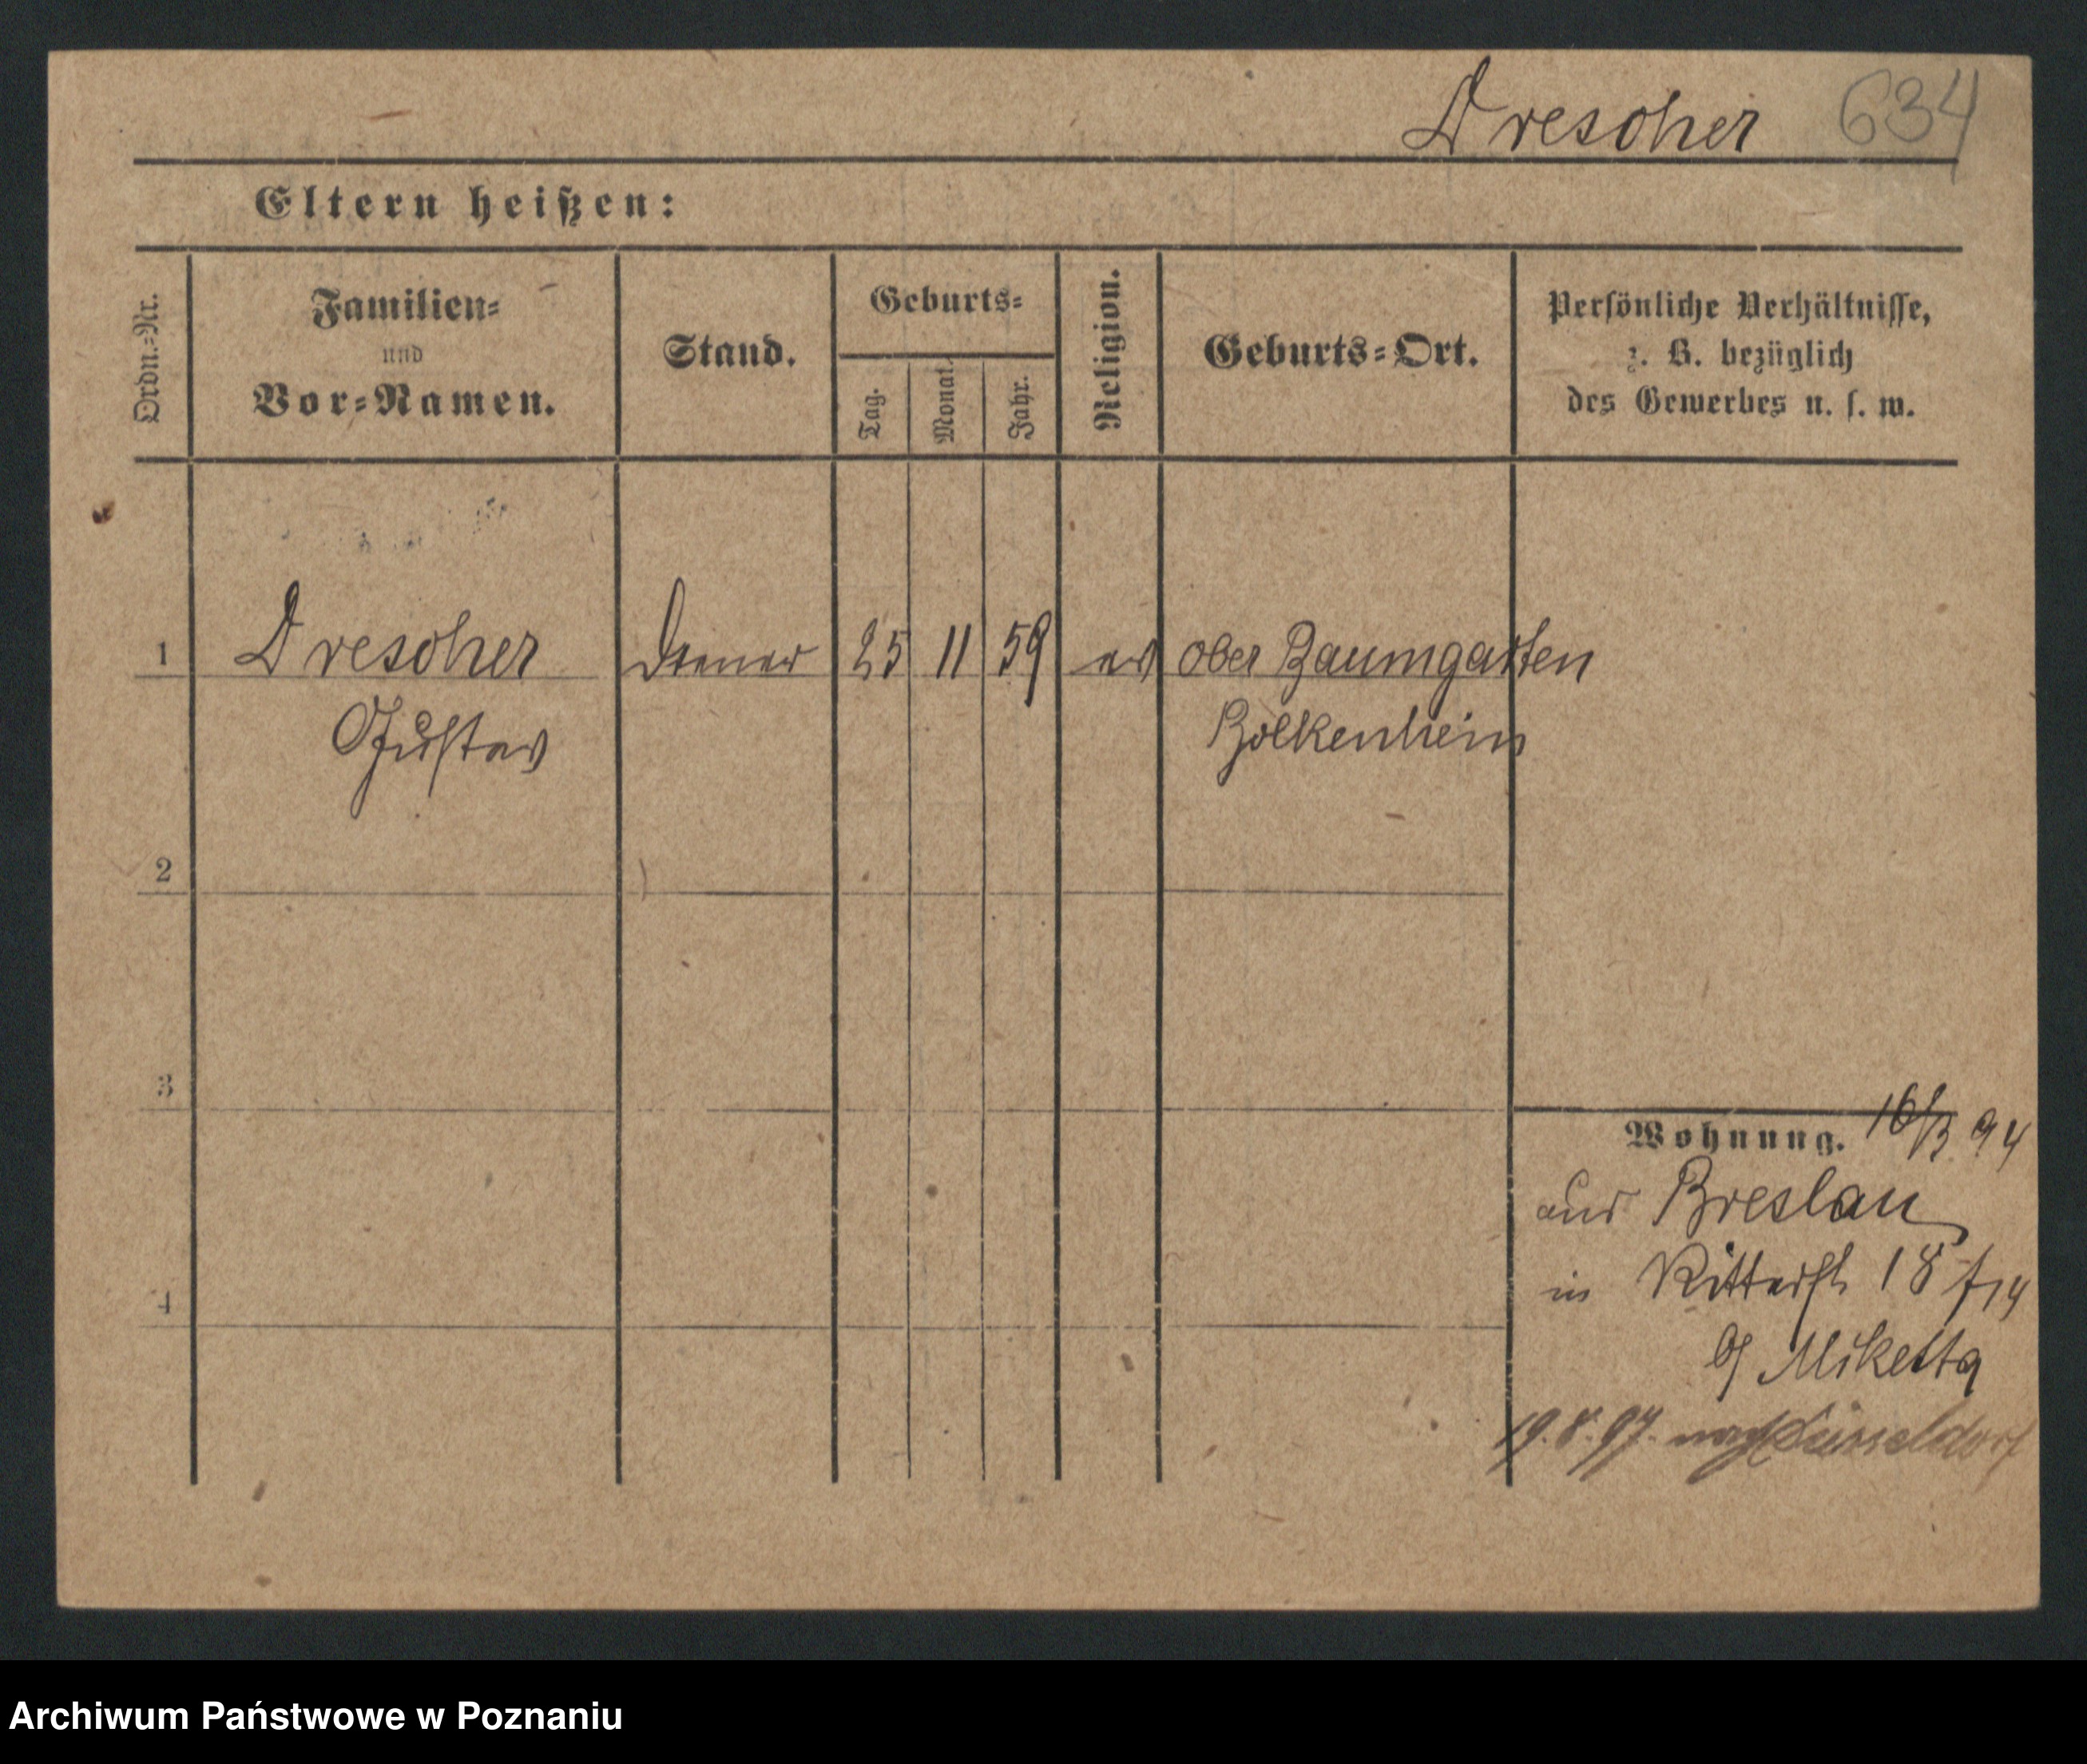 Drescher 634
Eltern heißen:
Ordn.-Nr.
Familien-
und
Vor-Namen.
Stand.
Geburts-
Tag.
Monat.
Jahr.
Religion.
Geburts-Ort.
Persönliche Verhältnisse,
z. B. bezüglich
des Gewerbes u. s. w.
1 Drescher Diener 25 11 59 ev Ober Baumgarten
Gustav Bolkenhein
2
3
4
Wohnung. 16/3 94
aus Breslau
in Ritterstr 18
b/ Miketta
19.8.97. nach Düsseldorf
Archiwum Państwowe w Poznaniu